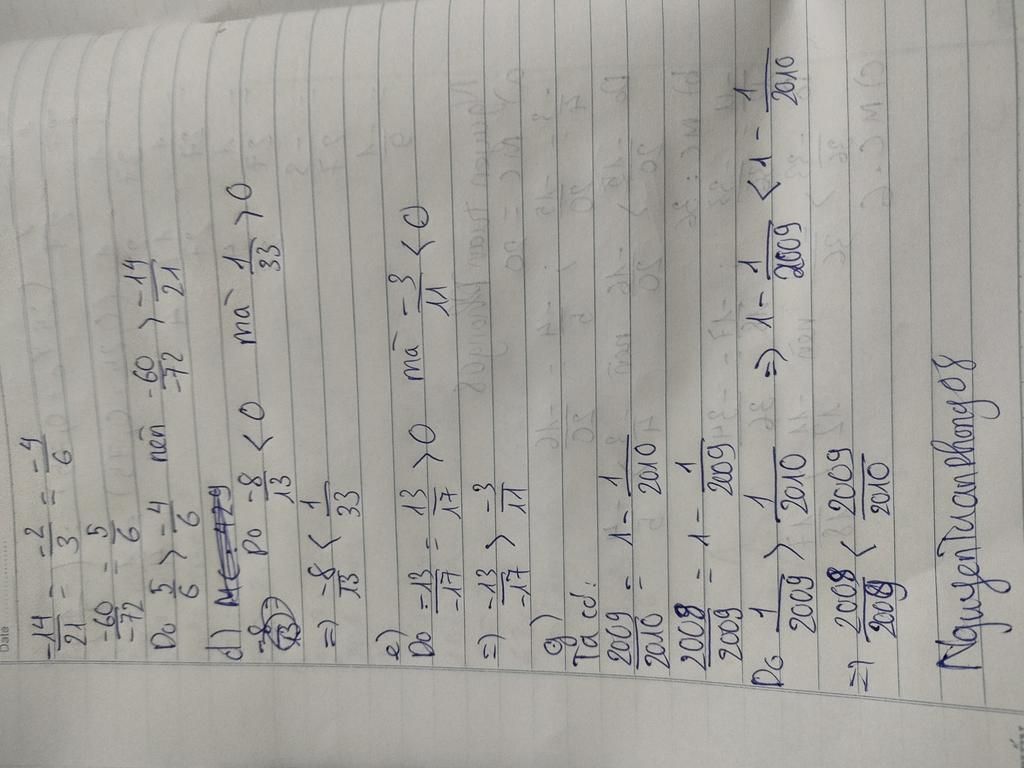 Date
-14/21 = -2/3 = -4/6
-60/-72 = 5/6
Do 5/6 > -4/6 nên -60/-72 > -14/21
d)
Do -8/13 < 0 mà 1/33 > 0
=) -8/13 < 1/33
e)
Do -13/-17 = 13/17 > 0 mà -3/11 < 0
=) -13/-17 > -3/11
g)
Ta có:
2009/2010 = 1 - 1/2010
2008/2009 = 1 - 1/2009
Do 1/2009 > 1/2010 =) 1 - 1/2009 < 1 - 1/2010
=) 2008/2009 < 2009/2010
NguyenTuanPhong08